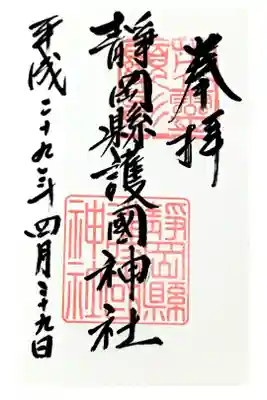 奉拝
靜岡縣護國神社
平成二十九年四月二十九日
靜岡縣護國神社